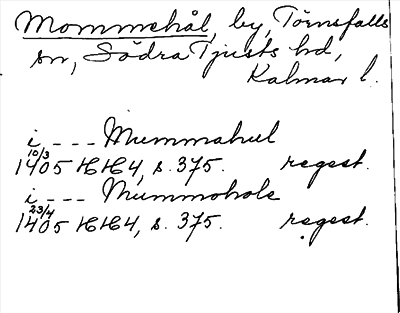 Mommehål, by, Törnsfalls
sn, Södra Tjusts hd,
Kalmar l.
i - - - Mummahul
10/3
1405 HH4, s. 375. regest.
i - - - Mummohole
23/4
1405 HH4, s. 375. regest.